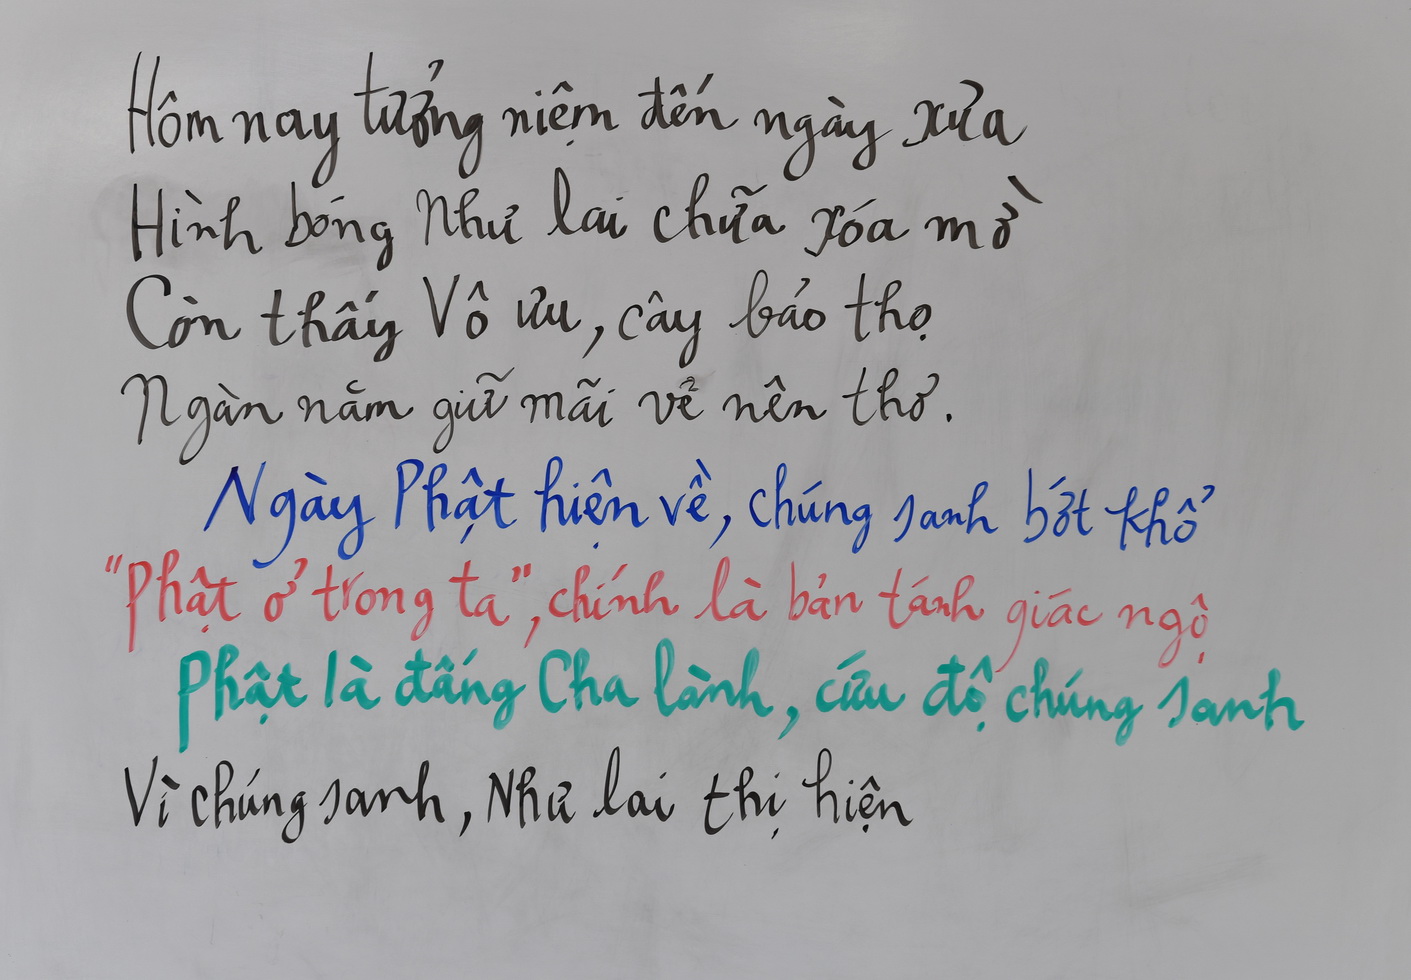 Hôm nay tưởng niệm đến ngày xưa
Hình bóng Như lai chữa xóa mờ
Còn thấy Vô ưu, cây bảo thọ
Ngàn năm giữ mãi vẻ nên thơ.
Ngày Phật hiện về, chúng sanh bớt khổ
"Phật ở trong ta", chính là bản tánh giác ngộ
Phật là đấng Cha lành, cứu độ chúng sanh
Vì chúng sanh, Như lai thị hiện